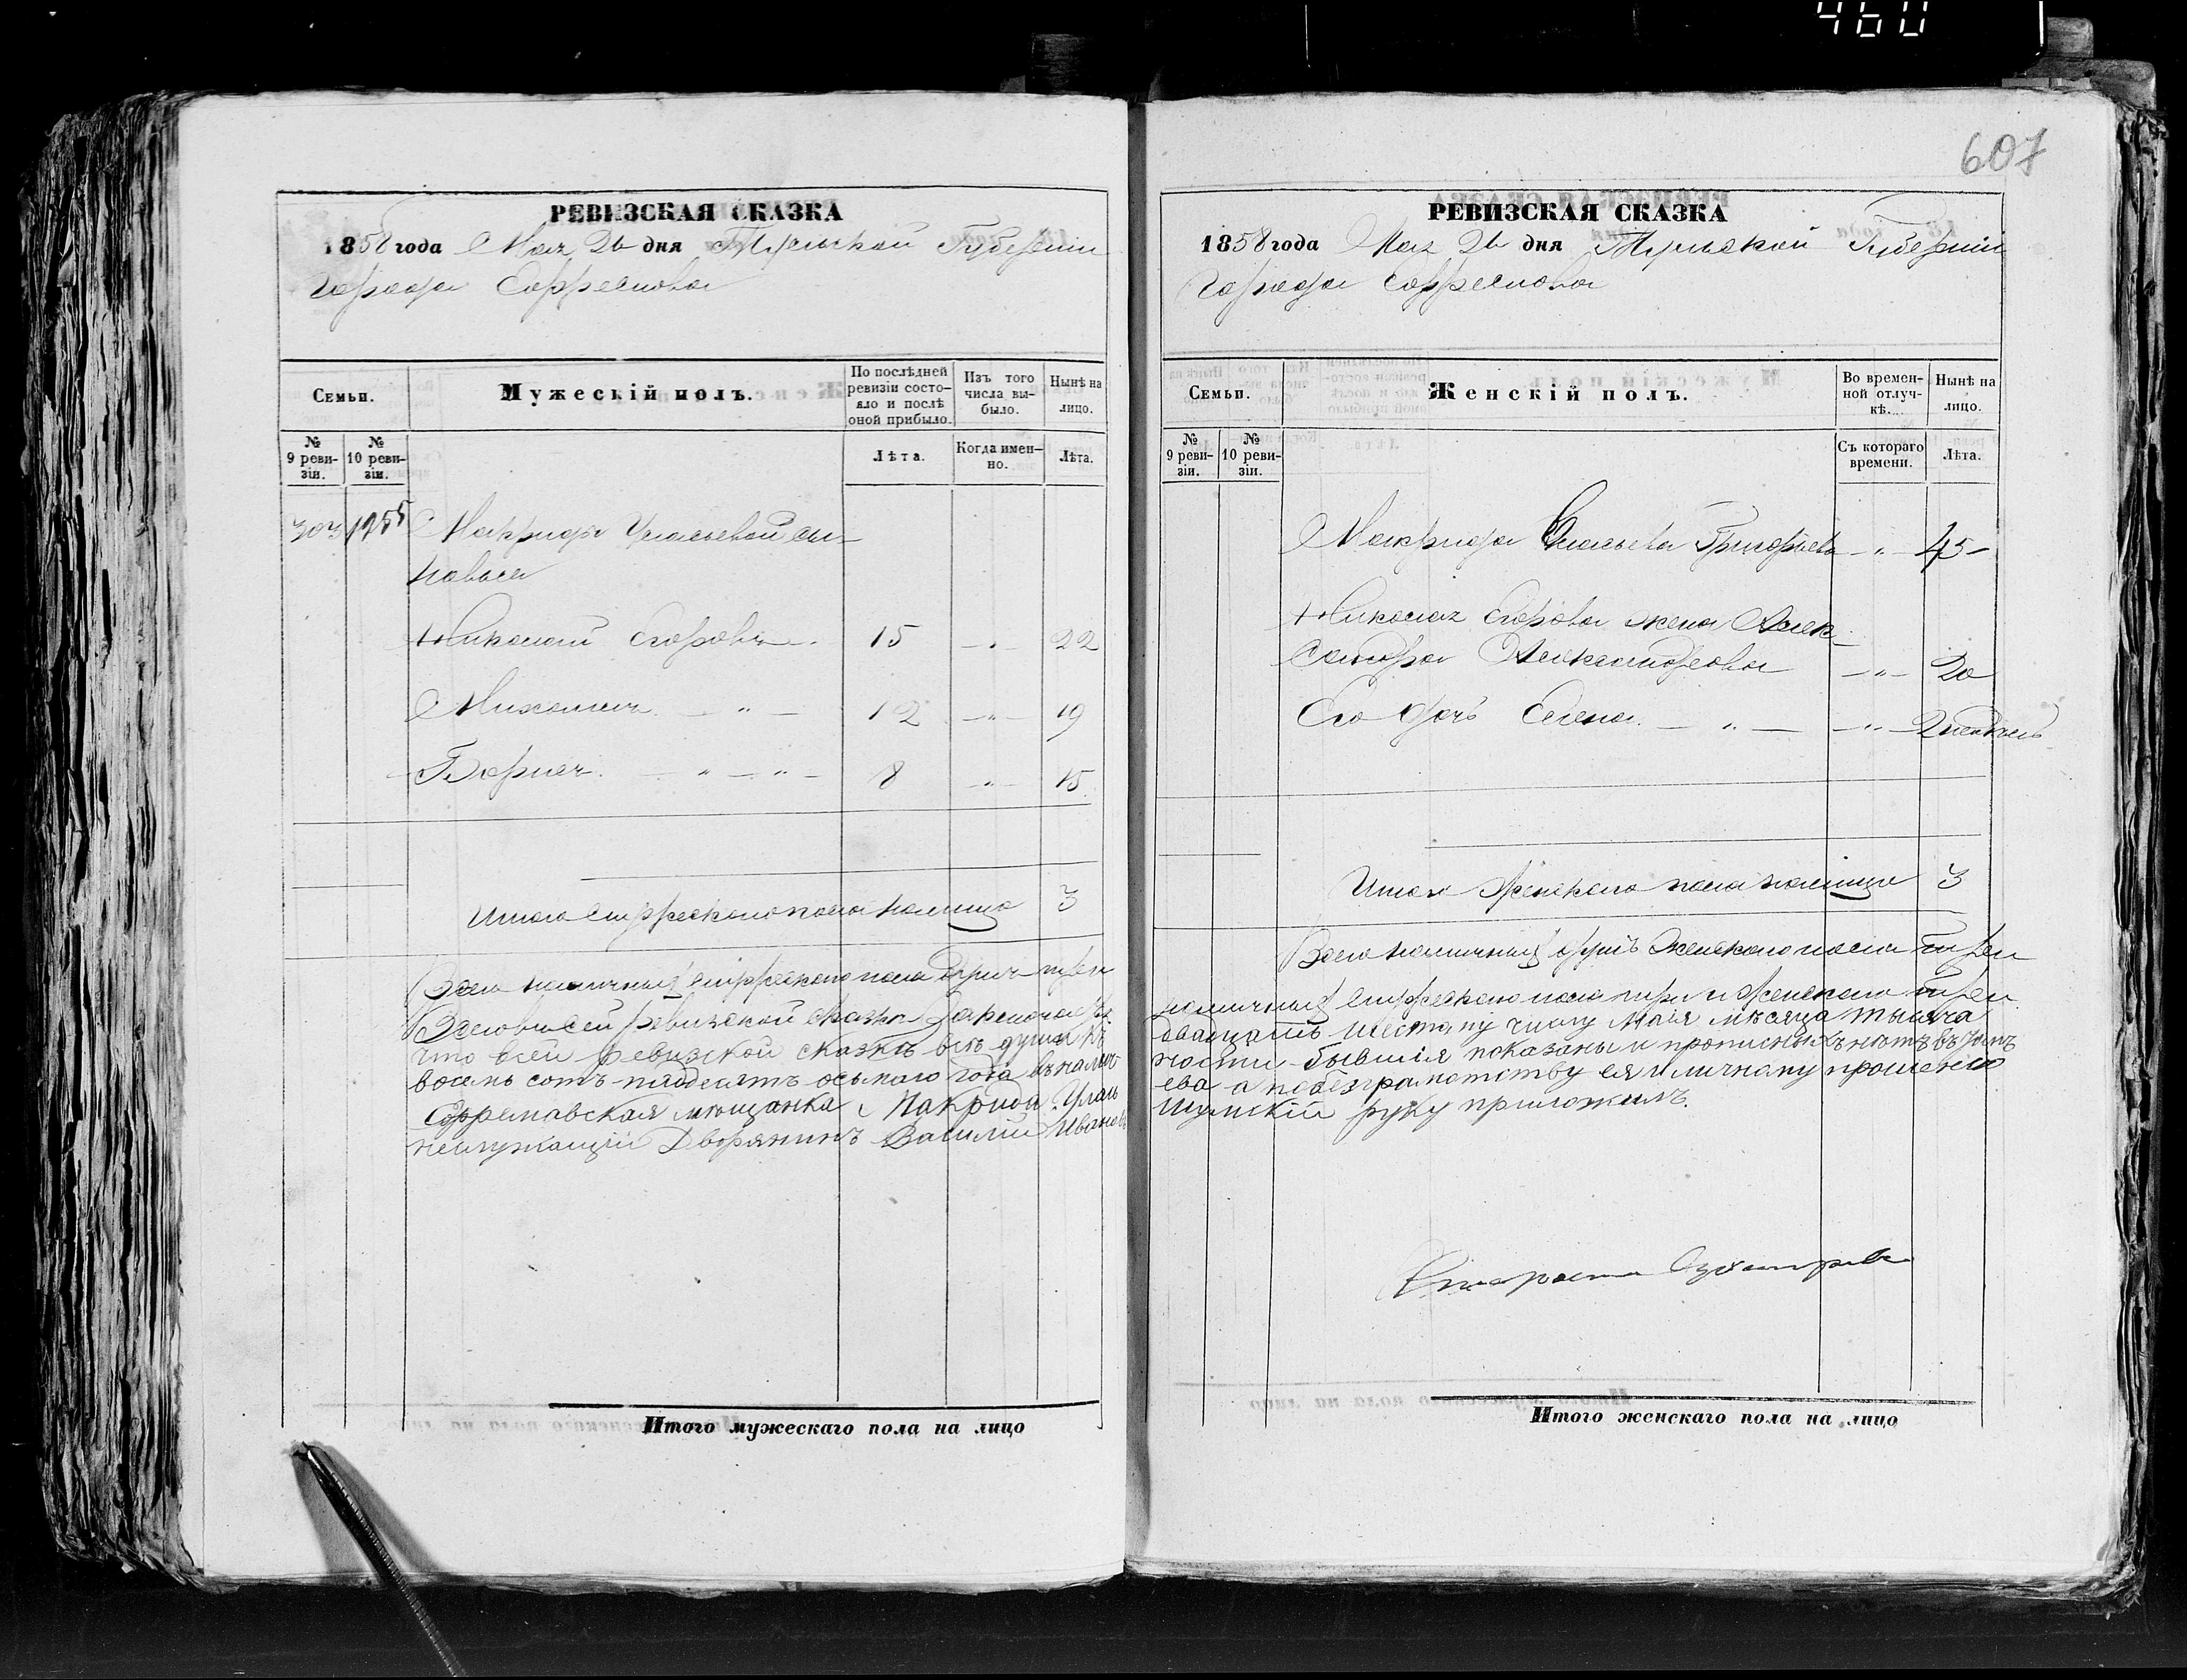 460
607
РЕВИЗСКАЯ СКАЗКА
1858 года Мая 26 дня Тульской Губерніи
Города Ефремова
Семьи.
Мужескій полъ.
По послѣдней ревизіи состояло и послѣ оной прибыло.
Изъ того числа выбыло.
Нынѣ на лицо.
№ 9 ревизіи.
№ 10 ревизіи.
Лѣта.
Когда именно.
Лѣта.
303 Макриды сы-
новья
Николай Егоровъ 15 — „ — 22
Михаилъ — „ — 12 — „ — 19
Борисъ — „ — „ — 8 — „ — 15
Итого мужескаго пола налицо 3
Всего наличныхъ мужескаго пола душъ три
сей ревизской сказки
что всей ревизской сказкѣ всѣ души къ
восемь сотъ пядесятъ осьмаго года въ налич
Ефремавская мещанка Макрида Улаль
неслужащій Дворянинъ Василій Ивановъ
Итого мужескаго пола на лицо
РЕВИЗСКАЯ СКАЗКА
1858 года Мая 26 дня Тульской Губерніи
Города Ефремова
Семьи.
Женскій полъ.
Во временной отлучкѣ.
Нынѣ на лицо.
№ 9 ревизіи.
№ 10 ревизіи.
Съ котораго времени.
Лѣта.
Макрида Григорьева — „ — 45
Николая Егорова жена Алек-
сандра Александровна — „ — 20
Его дочь Елена — „ — — „ — 2 недель
Итого Женскаго пола налицо 3
Всего наличныхъ душъ Женскаго пола три
наличныхъ мужескаго пола три и Женскаго три
двадцать шестому числу Маія мѣсяца тысяча
ности бывшія показаны и прописныхъ нетъ въ чемъ
ева а по безграмотству ея и личному прошенію
Шумскій руку приложилъ.
Староста
Итого женскаго пола на лицо